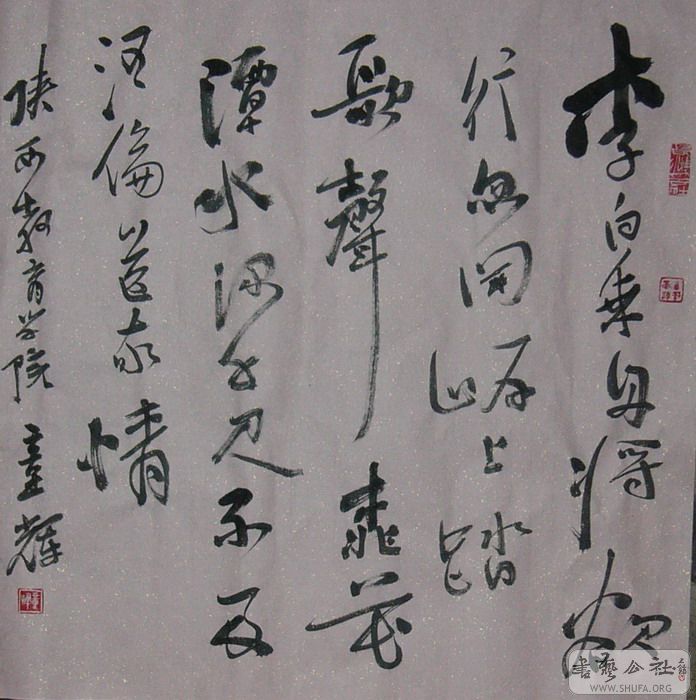 李白乘舟将欲
行忽闻岸上踏
歌聲桃花
潭水深千尺不及
汪倫送我情
陕西教育学院 童輝
書藝公社
WWW.SHUFA.ORG